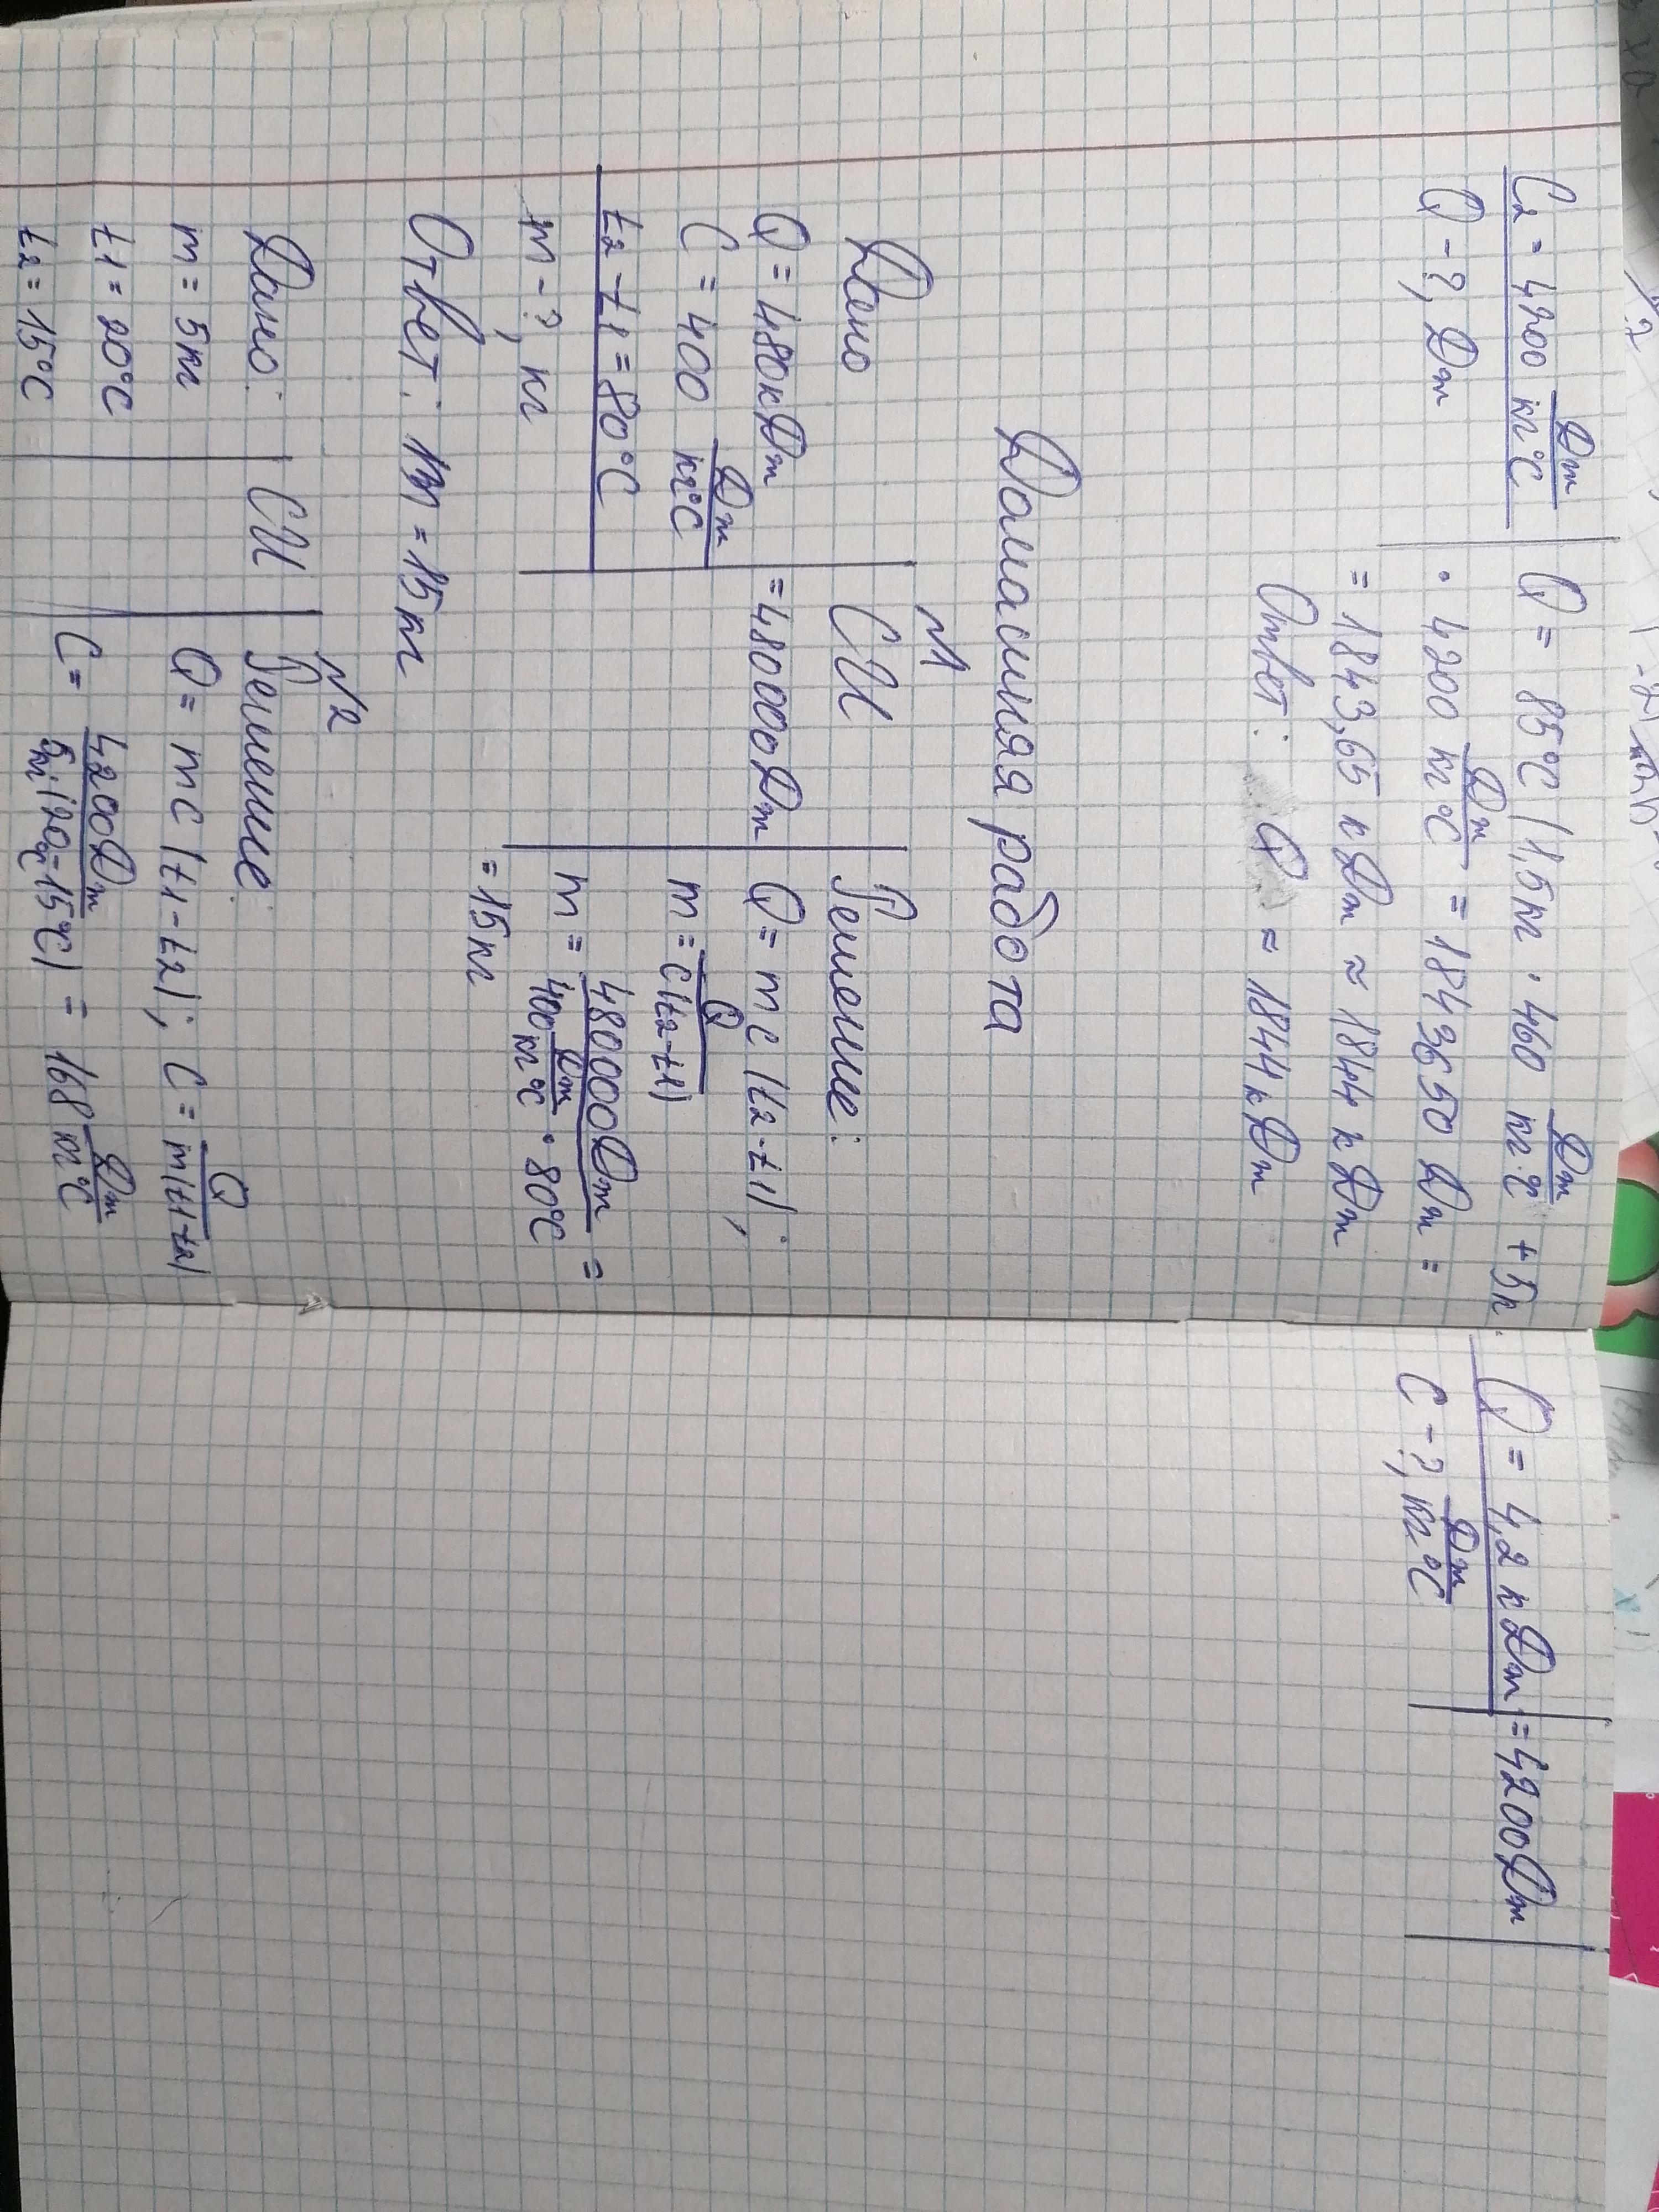 C₂ = 4200 Дж/кг°C
Q - ?, Дж
Q = 85°C (1,5кг · 460 Дж/кг°C + 5к
· 4200 Дж/кг°C = 1843650 Дж =
= 1843,65 кДж ≈ 1844 кДж
Ответ: Q ≈ 1844 кДж
Домашняя работа
N1
Дано
СИ
Решение:
Q = 480кДж
= 480000Дж
Q = mc (t2 - t1);
C = 400 Дж/кг°C
m = Q/C(t2-t1)
t2 - t1 = 80°C
m = 480000Дж/400 Дж/кг°C · 80°C =
m - ?, кг
= 15кг
Ответ: m = 15кг
N2
Дано:
СИ
Решение:
m = 5кг
Q = mc (t1 - t2); C = Q/m(t1-t2)
t1 = 20°C
C = 4200Дж/5кг(20°C-15°C) = 168 Дж/кг°C
t2 = 15°C
Q = 4,2 кДж
= 4200Дж
C - ?, Дж/кг°C